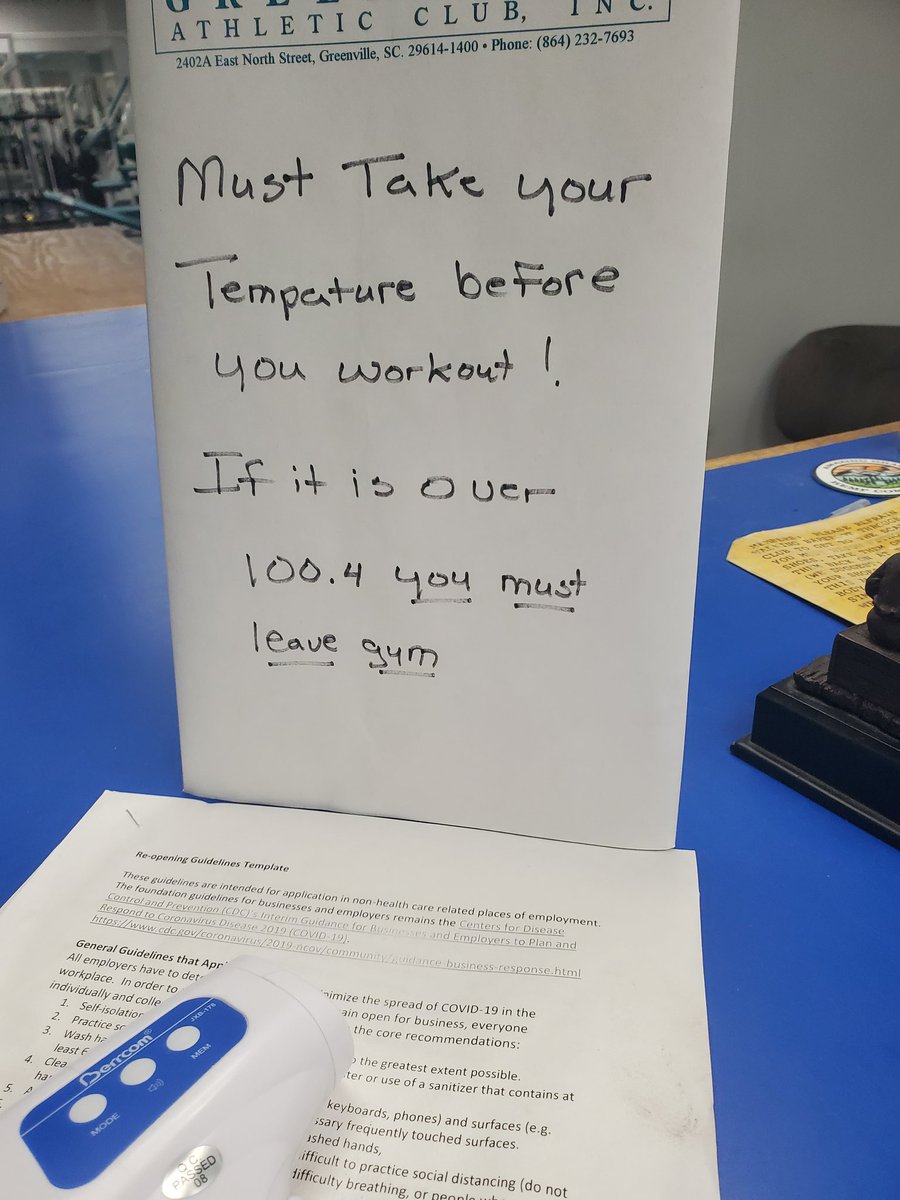 ATHLETIC CLUB, INC.
2402A East North Street, Greenville, SC. 29614-1400 • Phone: (864) 232-7693
Must Take your
Tempature before
you workout!
If it is over
100.4 you must
leave gym
Re-opening Guidelines Template
These guidelines are intended for application in non-health care related places of employment.
The foundation guidelines for businesses and employers remains the Centers for Disease
Control and Prevention (CDC)'s Interim Guidance for Businesses and Employers to Plan and
Respond to Coronavirus Disease 2019 (COVID-19).
https://www.cdc.gov/coronavirus/2019-ncov/community/guidance-business-response.html
General Guidelines that
All employers have to
workplace. In order to
the spread of COVID-19 in the
individually and
open for business, everyone
the core recommendations:
1. Self-isolation
2. Practice
the greatest extent possible.
3. Wash
or use of a sanitizer that contains at
least
4.
keyboards, phones) and surfaces (e.g.
frequently touched surfaces.
5.
hands,
difficult to practice social distancing (do not
difficulty breathing, or people
Berrcom®
JXB-178
MODE
MEM
Q.C.
PASSED
08
PLEASE REFRAIN